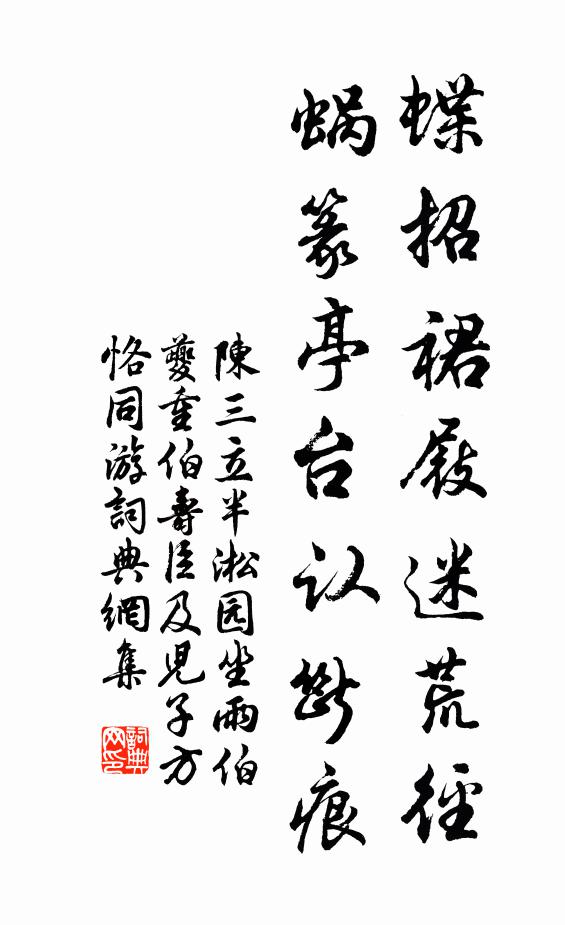 蝶招裙屐迷荒径
蜗篆亭台认断痕
陳三立半淞园坐雨伯
夔重伯壽臣及兒子方
恪同游詞典網集
詞典网印